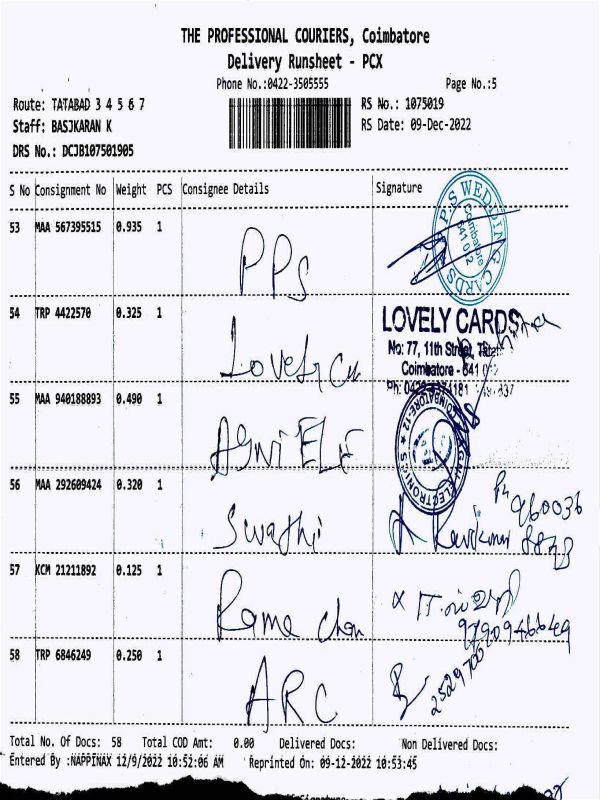 THE PROFESSIONAL COURIERS, Coimbatore
Delivery Runsheet - PCX
Phone No.:0422-3505555 Page No.:5
Route: TATABAD 3 4 5 6 7 RS No.: 1075019
Staff: BASJKARAN K RS Date: 09-Dec-2022
DRS No.: DCJB107501905
S No Consignment No Weight PCS Consignee Details Signature
53 MAA 567395515 0.935 1 PPS P.S WEDDING CARDS Coimbatore 641 012
54 TRP 4422570 0.325 1 Lovely LOVELY CARDS
No: 77, 11th Street,
Coimbatore - 641
55 MAA 940188893 0.490 1 AGNI ELE AGNI ELECTRONICS COIMBATORE-12
56 MAA 292609424 0.320 1 Swathi Ravikumar
Ph 960036
57 KCM 21211892 0.125 1 Rama Chan
9790946649
58 TRP 6846249 0.250 1 ARC
Total No. Of Docs: 58 Total COD Amt: 0.00 Delivered Docs: Non Delivered Docs:
Entered By :NAPPINAX 12/9/2022 10:52:06 AM Reprinted On: 09-12-2022 10:53:45
Signature